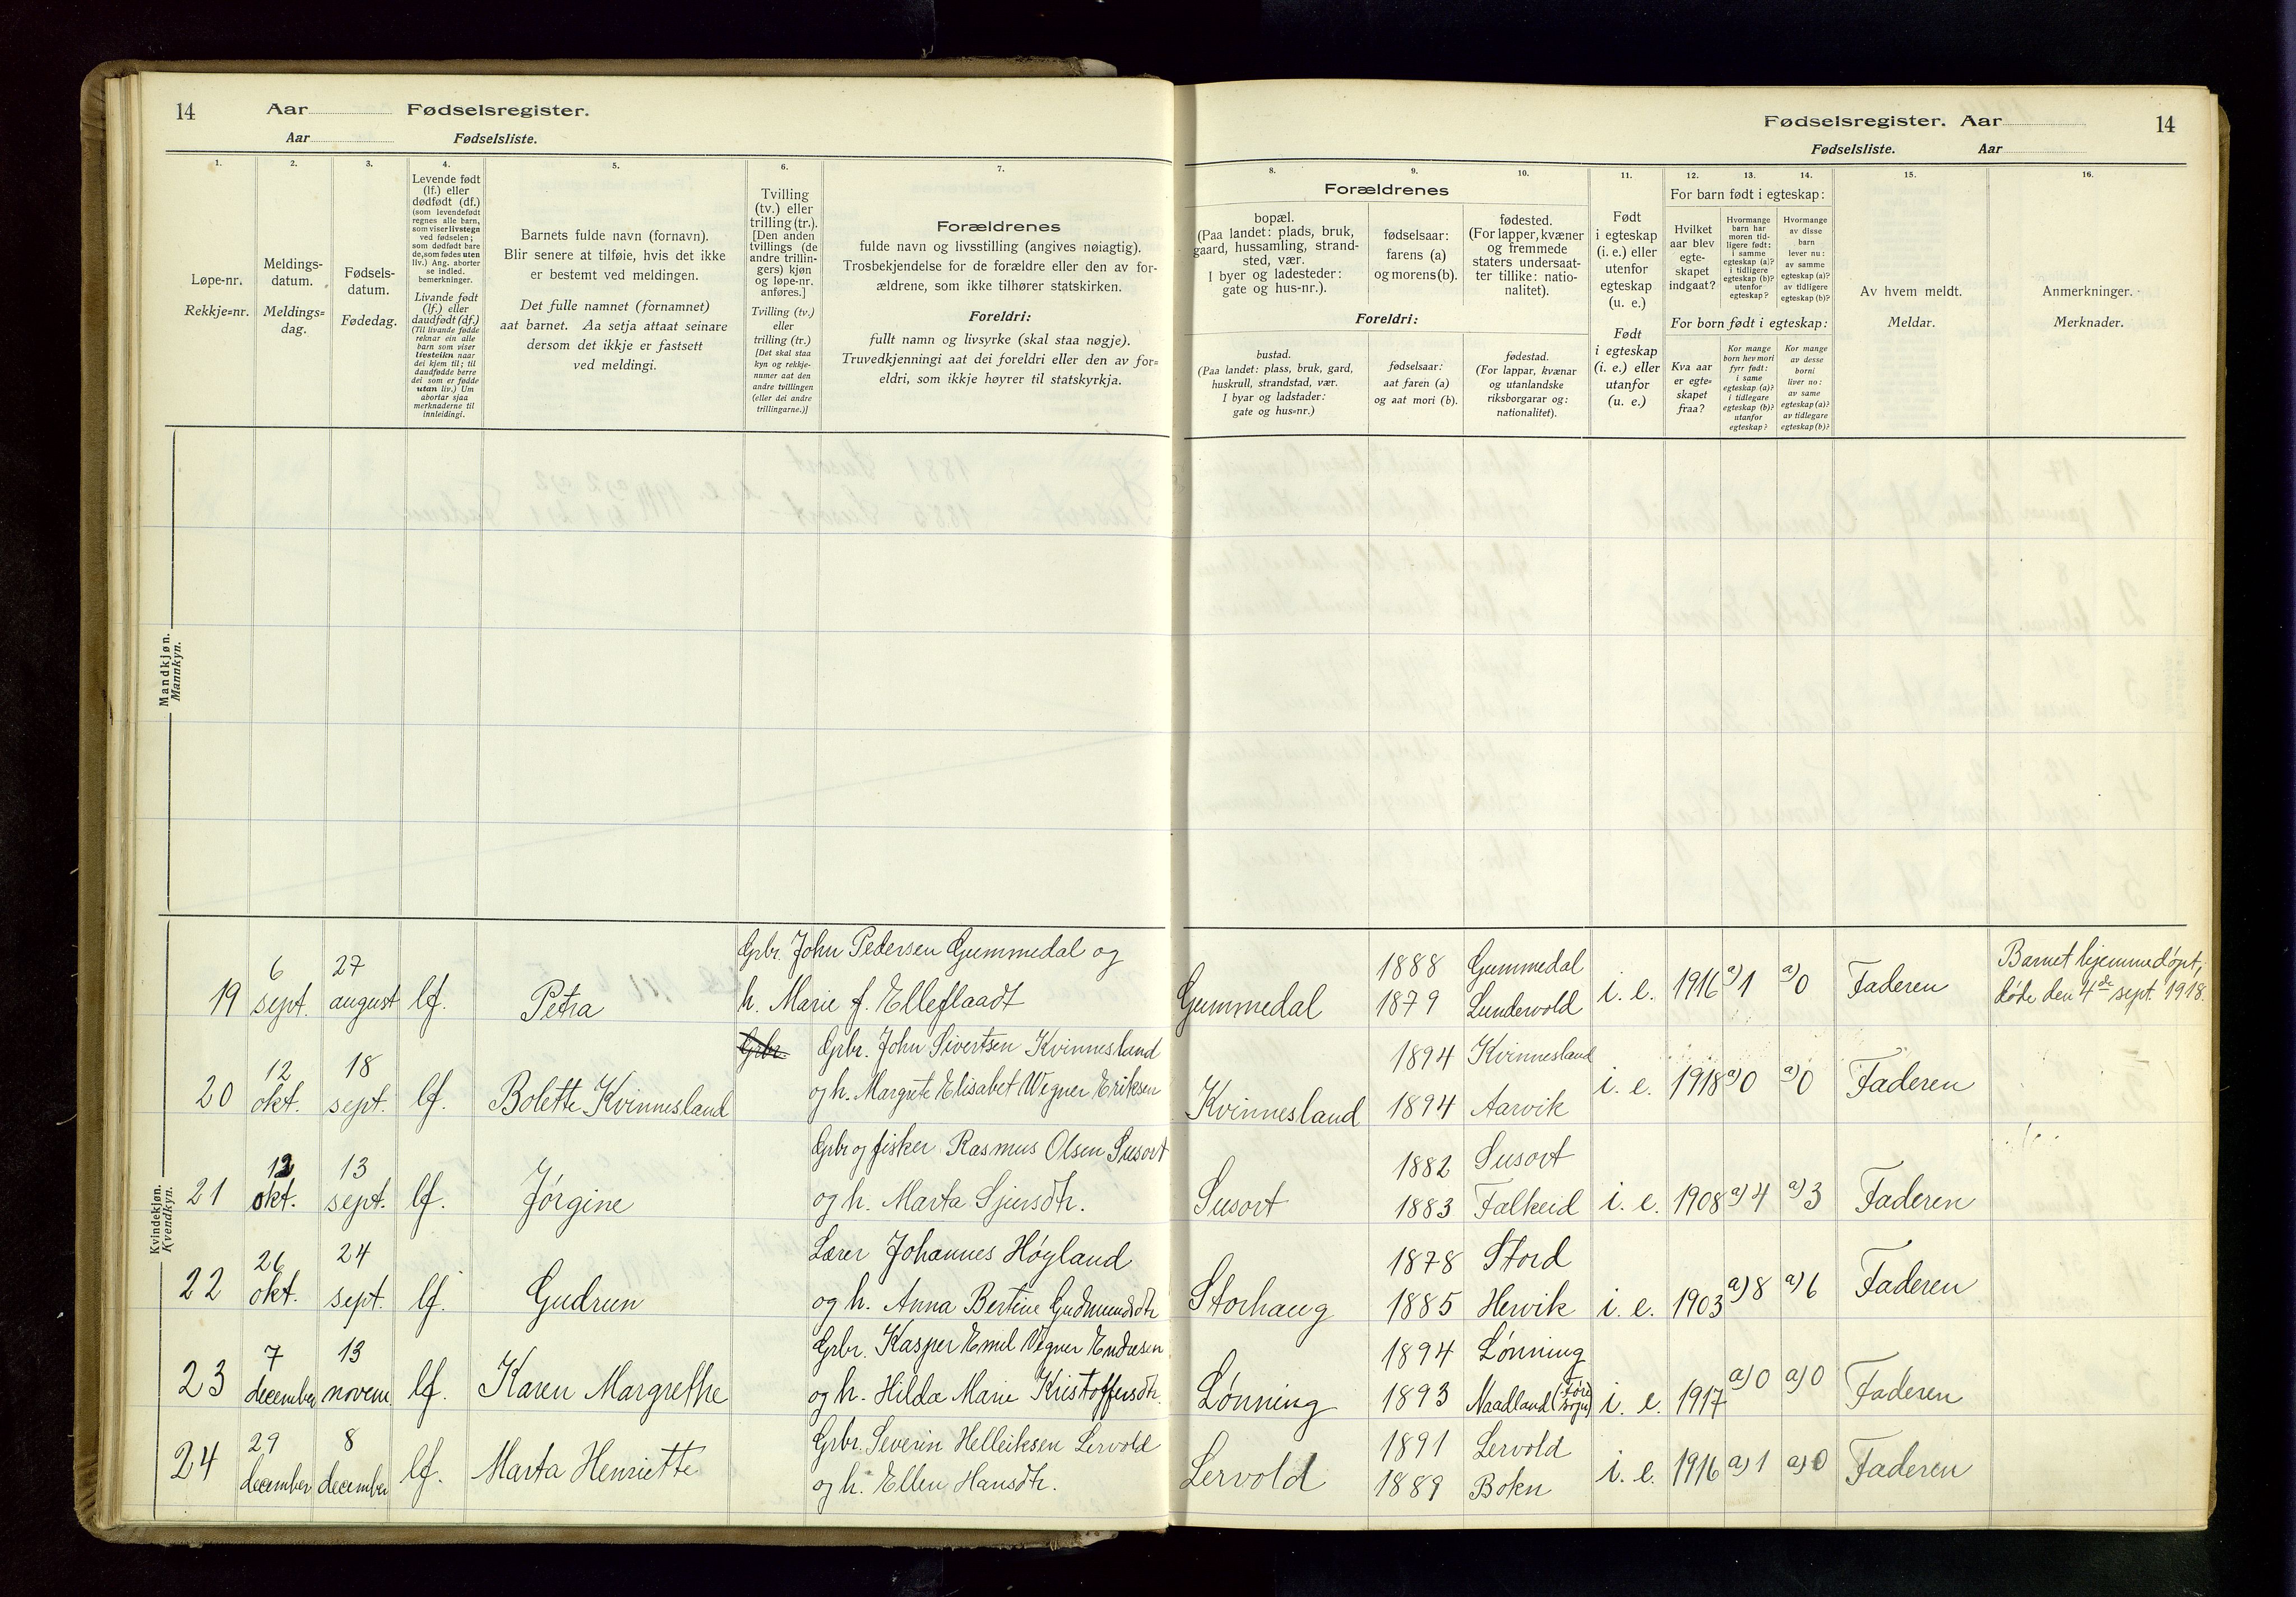 14 Aar Fødselsregister.
Aar Fødselsliste.
Fødselsregister. Aar 14
Fødselsliste. Aar
1.
Løpe-nr.
Rekkje=nr.
2.
Meldings-
datum.
Meldings=
dag.
3.
Fødsels-
datum.
Fødedag.
4.
Levende født
(lf.) eller
dødfødt (df.)
(som levendefødt
regnes alle barn,
som viser livstegn
ved fødselen;
som dødfødt bare
de, som fødes uten
liv.) Ang. aborter
se indled.
bemerkninger.
Livande født
(lf.) eller
daudfødt (df.)
(Til livande fødde
reknar ein alle
barn som viser
livsteikn naar
dei kjem til; til
daudfødde berre
dei som er fødde
utan liv.) Um
abortar sjaa
merknaderne til
innleidingi.
5.
Barnets fulde navn (fornavn).
Blir senere at tilføie, hvis det ikke
er bestemt ved meldingen.
Det fulle namnet (fornamnet)
aat barnet. Aa setja attaat seinare
dersom det ikkje er fastsett
ved meldingi.
6.
Tvilling
(tv.) eller
trilling (tr.).
[Den anden
tvillings (de
andre trillin-
gers) kjøn
og løpe-nr.
anføres.]
Tvilling (tv.)
eller
trilling (tr.)
[Det skal staa
kyn og rekkje-
numer aat den
andre tvillingen
(eller dei andre
trillingarne.)]
7.
Forældrenes
fulde navn og livsstilling (angives nøiagtig).
Trosbekjendelse for de forældre eller den av for-
ældrene, som ikke tilhører statskirken.
Foreldri:
fullt namn og livsyrke (skal staa nøgje).
Truvedkjenningi aat dei foreldri eller den av for=
eldri, som ikkje høyrer til statskyrkja.
Forældrenes
8.
bopæl.
(Paa landet: plads, bruk,
gaard, hussamling, strand-
sted, vær.
I byer og ladesteder:
gate og hus-nr.).
9.
fødselsaar:
farens (a)
og morens (b).
10.
fødested.
(For lapper, kvæner
og fremmede
staters undersaat-
ter tillike: natio-
nalitet).
Foreldri:
bustad.
(Paa landet: plass, bruk, gard,
huskrull, strandstad, vær.
I byar og ladstader:
gate og hus=nr.)
fødselsaar:
aat faren (a)
og aat mori (b).
fødestad.
(For lappar, kvænar
og utanlandske
riksborgarar og:
nationalitet).
11.
Født
i egteskap
(i. e.) eller
utenfor
egteskap
(u. e.)
Født
i egteskap
(i. e.) eller
utanfor
(u. e.)
12. 13. 14.
For barn født i egteskap:
Hvilket
aar blev
egte-
skapet
indgaat?
Hvormange
barn har
moren tid-
ligere født:
i samme
egteskap (a)?
i tidligere
egteskap (b)?
utenfor
egteskap?
Hvormange
av disse
barn
lever nu:
av samme
egteskap (a)?
av tidligere
egteskap (b)?
For born født i egteskap:
Kva aar
er egte=
skapet
fraa?
Kor mange
born hev mori
fyrr født:
i same
egteskap (a)?
i tidlegare
egteskap (b)?
utanfor
egteskap?
Kor mange
av desse
borni
liver no:
av same
egteskap (a)?
av tidlegare
egteskap (b)?
15.
Av hvem meldt.
Meldar.
16.
Anmerkninger.
Merknader.
Mandkjøn.
Mannkyn.
Kvindekjøn.
Kvendkyn.
19 6 sept. 27 august lf. Petra
Grbr. John Pedersen Gummedal og
h. Marie f. Elleflaadt
Gummedal 1888 Gummedal
1879 Lundervold
i. e. 1916 a) 1 a) 0 Faderen
Barnet hjemmedøpt,
døde den 4de sept. 1918.
20 12 okt. 18 sept. lf. Bolette Kvinnesland
Grbr. Grbr. John Sivertsen Kvinnesland
og h. Margrete Elisabet Wegner Eriksen
Kvinnesland 1894 Kvinnesland
1894 Aarvik
i. e. 1918 a) 0 a) 0 Faderen
21 12 okt. 13 sept. lf. Jørgine
Grbr og fisker Rasmus Olsen Susort
og h. Marta Sjursdtr.
Susort 1882 Susort
1883 Falkeid
i. e. 1908 a) 4 a) 3 Faderen
22 26 okt. 24 sept. lf. Gudrun
Lærer Johannes Høyland
og h. Anna Bertine Gudmundsdtr
Storhaug 1878 Stord
1885 Hervik
i. e. 1903 a) 8 a) 6 Faderen
23 7 december 13 novem. lf. Karen Margrethe
Grbr. Kasper Emil Wegner Endresen
og h. Hilda Marie Kristoffersdtr.
Lønning 1894 Lønning
1893 Naadland (Førre sogn)
i. e. 1917 a) 0 a) 0 Faderen
24 29 december 8 december lf. Marta Henriette
Grbr. Severin Helleiksen Lervold
og h. Ellen Hansdtr.
Lervold 1891 Lervold
1889 Bokn
i. e. 1916 a) 1 a) 0 Faderen